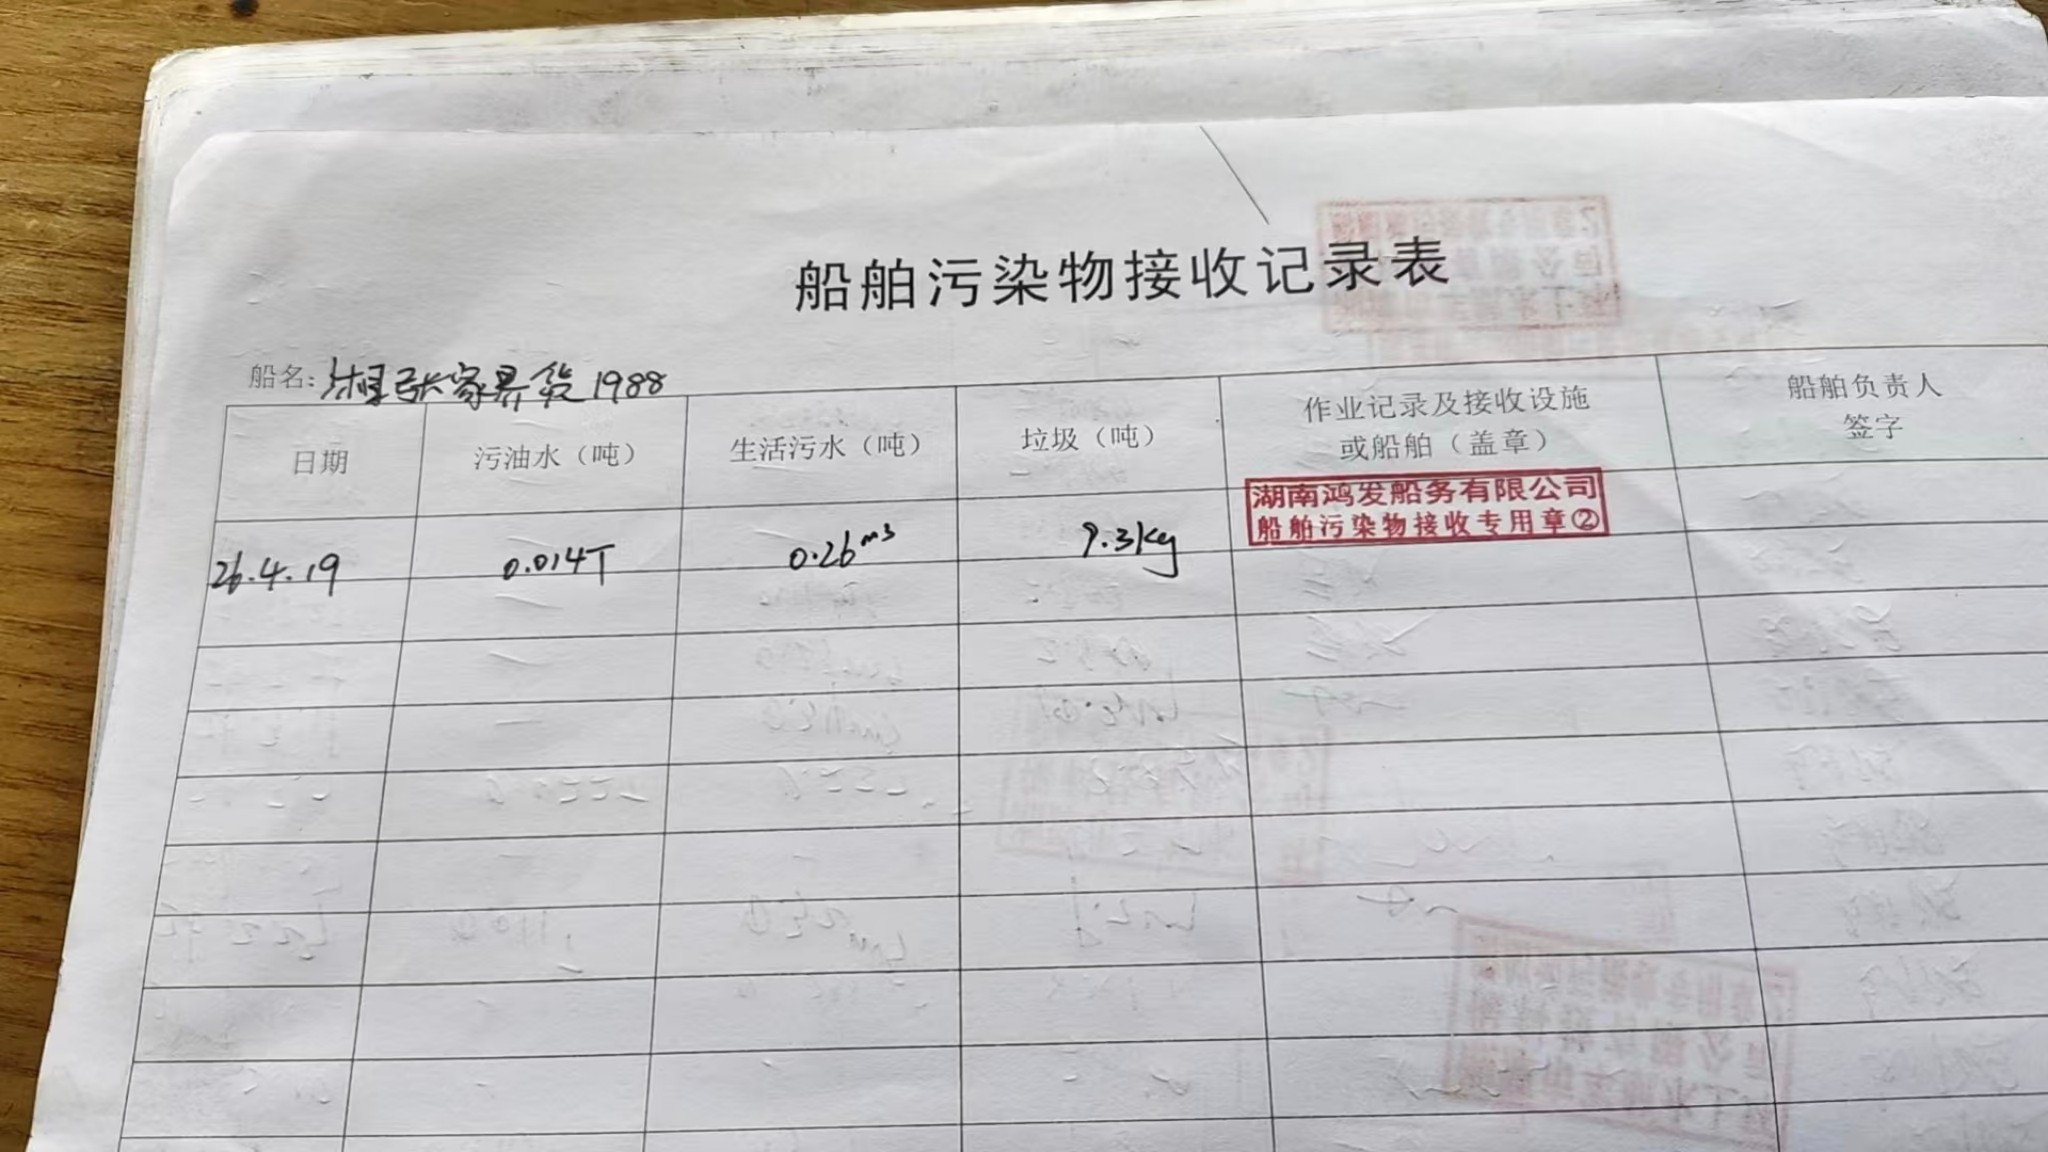 船舶污染物接收记录表
船名：湘张家界货1988
日期 污油水（吨） 生活污水（吨） 垃圾（吨） 作业记录及接收设施或船舶（盖章） 船舶负责人签字
湖南鸿发船务有限公司
船舶污染物接收专用章②
26.4.19 0.014T 0.26m3 9.3kg